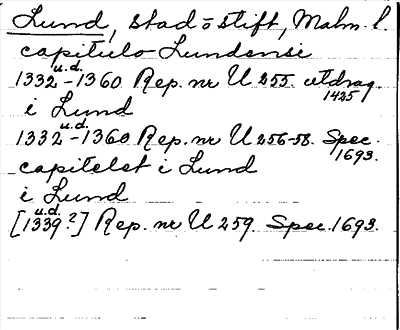 Lund, stad o stift, Malm. l
capitulo Lundensi
u.d.
1332-1360 Rep. nr U 255. utdrag
1425
i Lund
u.d.
1332-1360 Rep. nr U 256-58. Spec.
1693.
capitelet i Lund
i Lund
u.d.
[1339?] Rep. nr U 259. Spec. 1693.